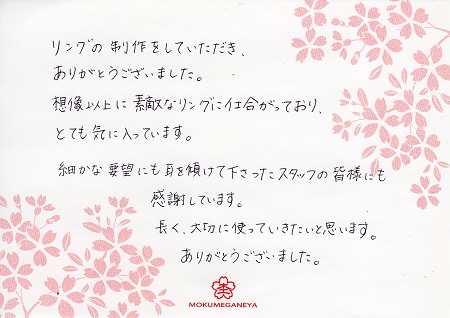 リングの制作をしていただき、
ありがとうございました。
想像以上に素敵なリングに仕合がっており、
とても気に入っています。
細かな要望にも耳を傾けて下さったスタッフの皆様にも
感謝しています。
長く、大切に使っていきたいと思います。
ありがとうございました。
MOKUMEGANEYA